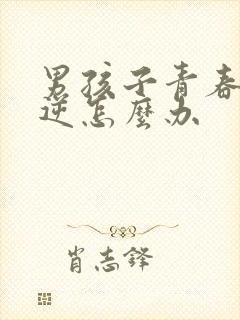 男孩子青春
逆怎麼办
肖志鋒